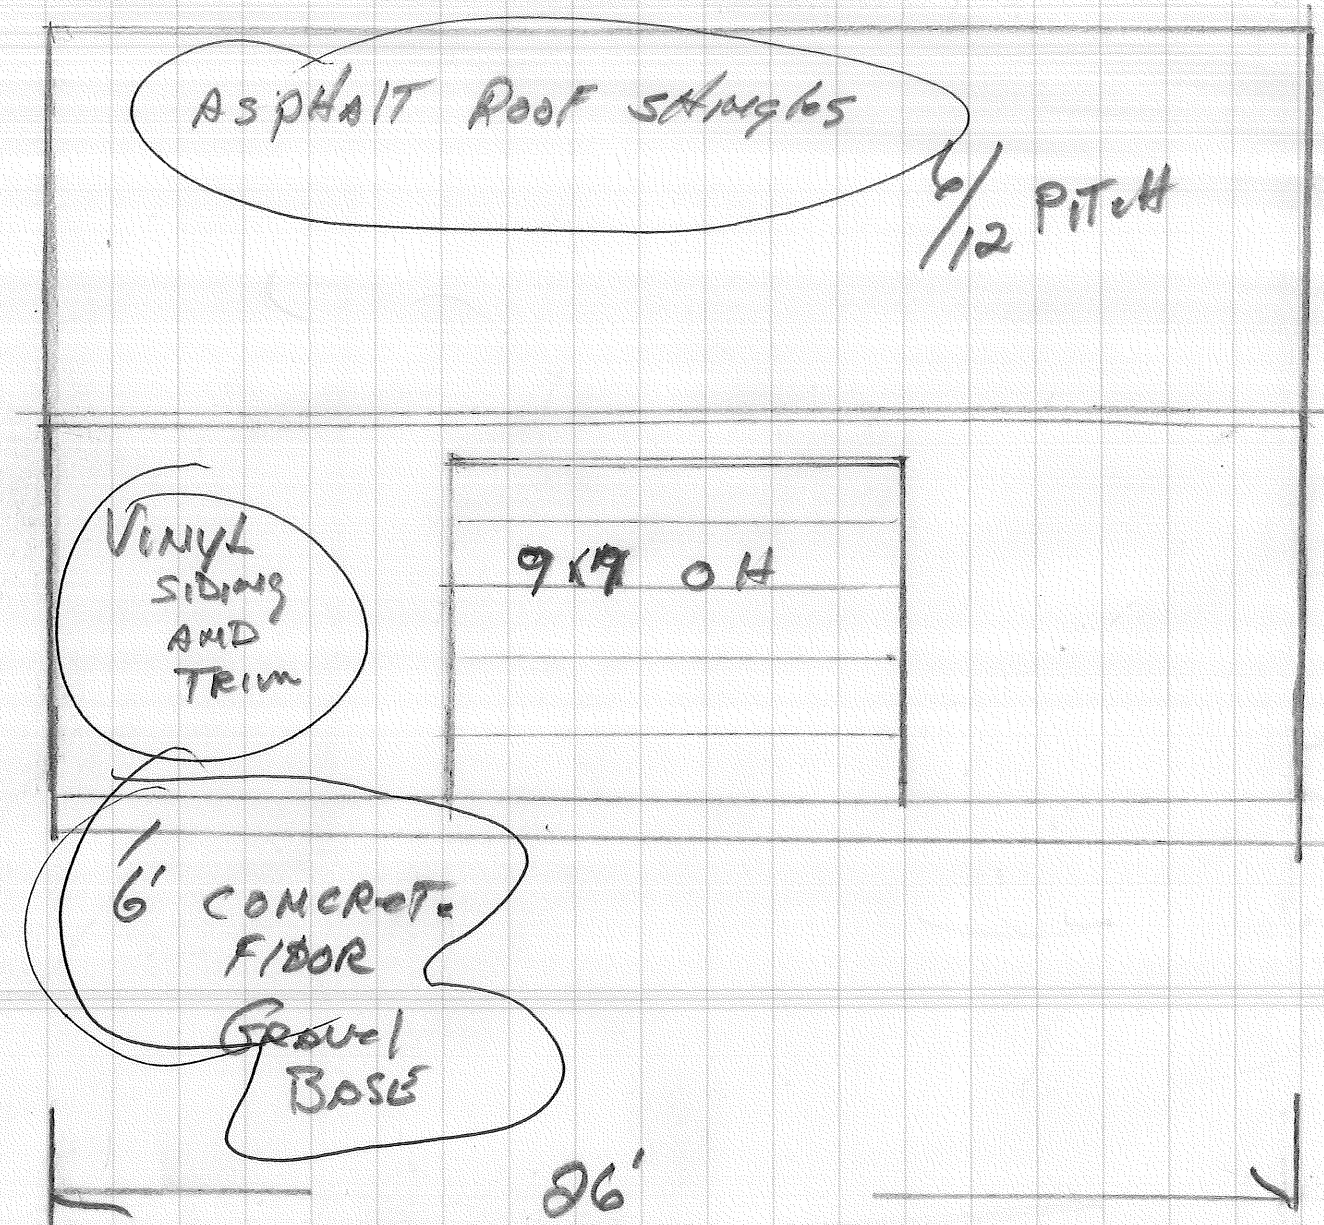 ASPHAlT ROOF SHINglES
6/12 PITCH
VINYL
SIDING
AND
TRIM
9x9 OH
6' CONCRETE
FlOOR
GRAVEl
BASE
26'